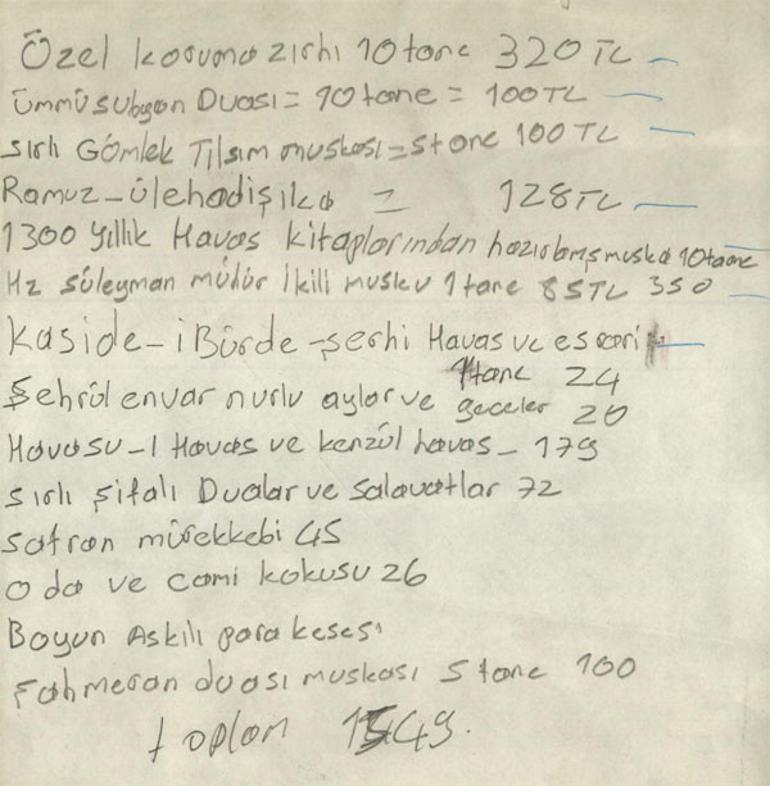 Özel koruma zırhı 10 tane 320 TL
Ümmüsubyan Duası = 10 tane = 100 TL
sırlı Gömlek Tılsım muskası = 5 tane 100 TL
Ramuz-ülehadiş ilca = 128 TL
1300 yıllık Havas kitaplarından hazırlamış muska 10 taane
Hz süleyman mühür ikili muskeu 1 tane 85 TL 350
Kaside-i Bürde-şerhi Havas ve esrari
1 tane 24
Şehrül envar nurlu aylar ve geceler 20
Havasu-l Havas ve kenzül havas - 179
sırlı şifalı Dualar ve salavatlar 72
safran mürekkebi 45
oda ve cami kokusu 26
Boyun Askılı para kesesi
Şahmeran duası muskası 5 tane 100
toplam 1549.